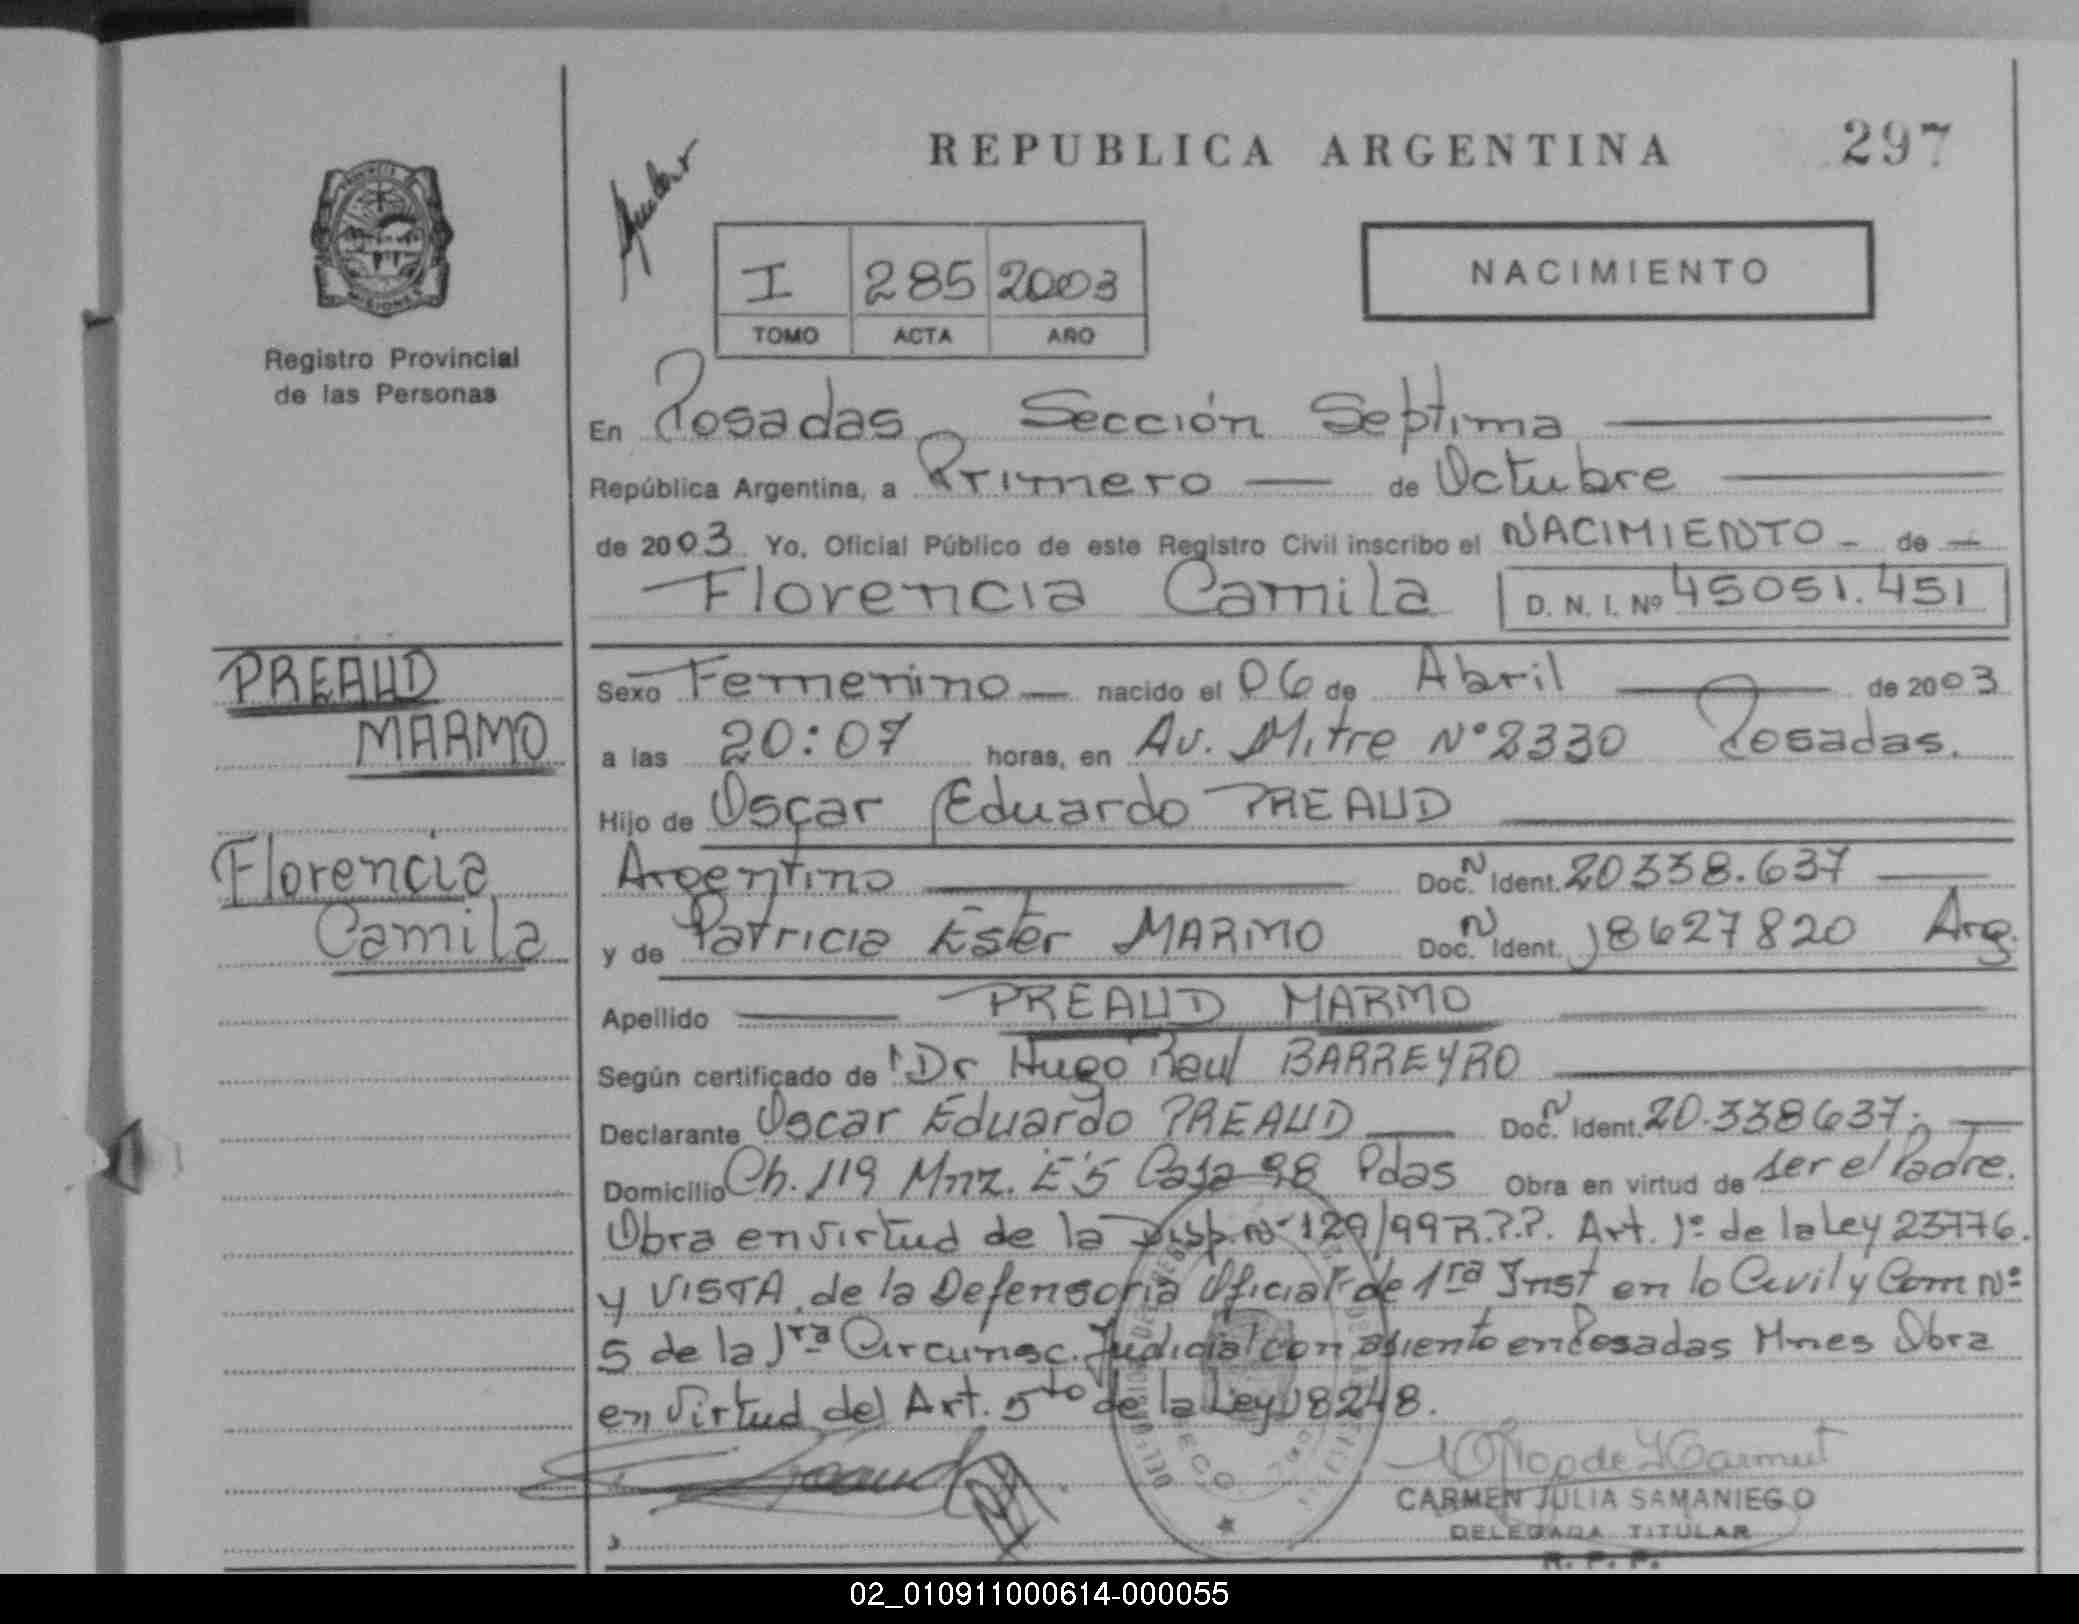 REPUBLICA ARGENTINA 297
PROVINCIA DE MISIONES
Registro Provincial
de las Personas
I 285 2003
TOMO ACTA AÑO
NACIMIENTO
En Posadas Sección Septima
República Argentina, a Primero de Octubre
de 2003 Yo, Oficial Público de este Registro Civil inscribo el NACIMIENTO de
Florencia Camila D. N. I. Nº 45051.451
PREAUD
MARMO
Florencia
Camila
Sexo Femenino nacido el 06 de Abril de 2003
a las 20:07 horas, en Av. Mitre Nº 2330 Posadas.
Hijo de Oscar Eduardo PREAUD
Argentino Doc. N Ident. 20338.637
y de Patricia Ester MARMO Doc. N Ident. 18627820 Arg.
Apellido PREAUD MARMO
Según certificado de Dr Hugo Raul BARREYRO
Declarante Oscar Eduardo PREAUD Doc. N Ident. 20.338637.
Domicilio Ch. 119 Mnz. E'5 Casa 98 Pdas Obra en virtud de ser el Padre.
Obra en virtud de la Disp. Nº 129/99 R.P.P. Art. 1º de la Ley 23776.
y VISTA de la Defensoria Oficial de 1ra Inst en lo Civil y Com Nº
5 de la 1ra Circunsc. Judicial con asiento en Posadas Mnes Obra
en virtud del Art. 5to de la Ley 18248.
CARMEN JULIA SAMANIEGO
DELEGADA TITULAR
R. P. P.
02_010911000614-000055